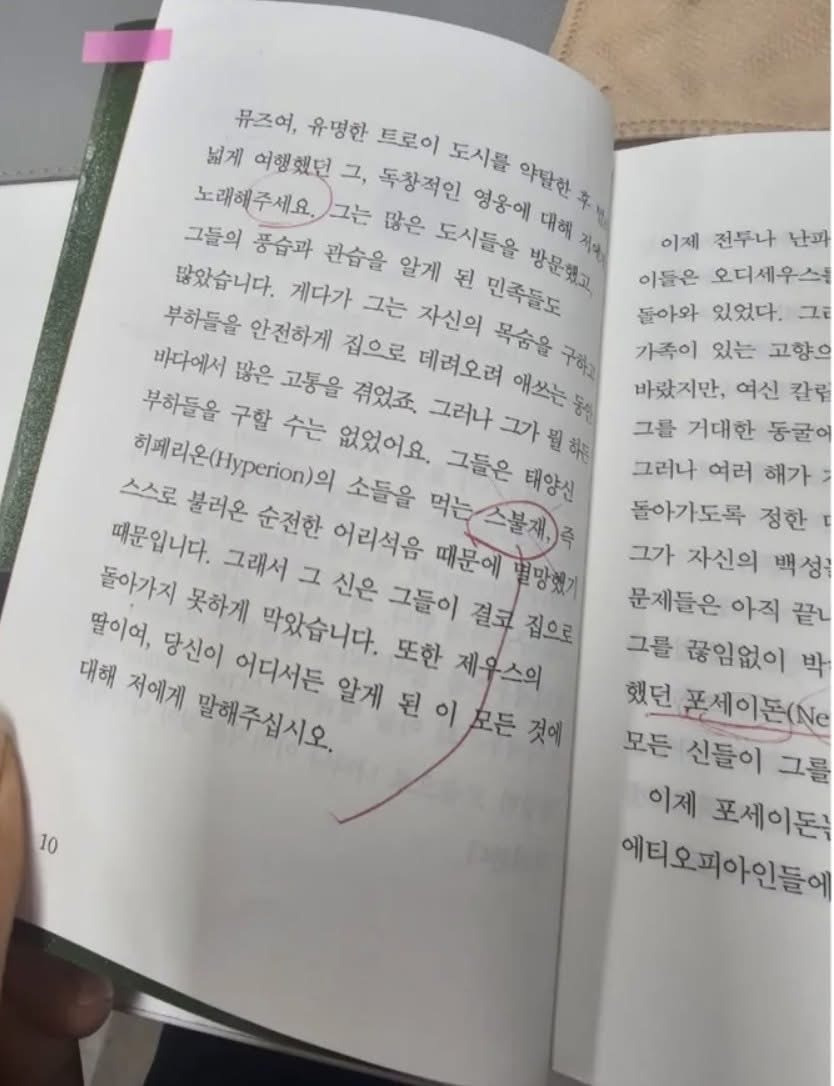 뮤즈여, 유명한 트로이 도시를 약탈한 후
넓게 여행했던 그, 독창적인 영웅에 대해
노래해주세요. 그는 많은 도시들을 방문했고,
그들의 풍습과 관습을 알게 된 민족들도
많았습니다. 게다가 그는 자신의 목숨을 구하고
부하들을 안전하게 집으로 데려오려 애쓰는 동안
바다에서 많은 고통을 겪었죠. 그러나 그가 뭘 하든
부하들을 구할 수는 없었어요. 그들은 태양신
히페리온(Hyperion)의 소들을 먹는 스불재, 즉
스스로 불러온 순전한 어리석음 때문에 멸망했기
때문입니다. 그래서 그 신은 그들이 결코 집으로
돌아가지 못하게 막았습니다. 또한 제우스의
딸이여, 당신이 어디서든 알게 된 이 모든 것에
대해 저에게 말해주십시오.
10
이제 전투나 난파
이들은 오디세우스를
돌아와 있었다.
가족이 있는 고향으
바랐지만, 여신 칼립
그를 거대한 동굴에
그러나 여러 해가
돌아가도록 정한
그가 자신의 백성들
문제들은 아직 끝나
그를 끊임없이 박
했던 포세이돈(Ne
모든 신들이 그를
이제 포세이돈은
에티오피아인들에